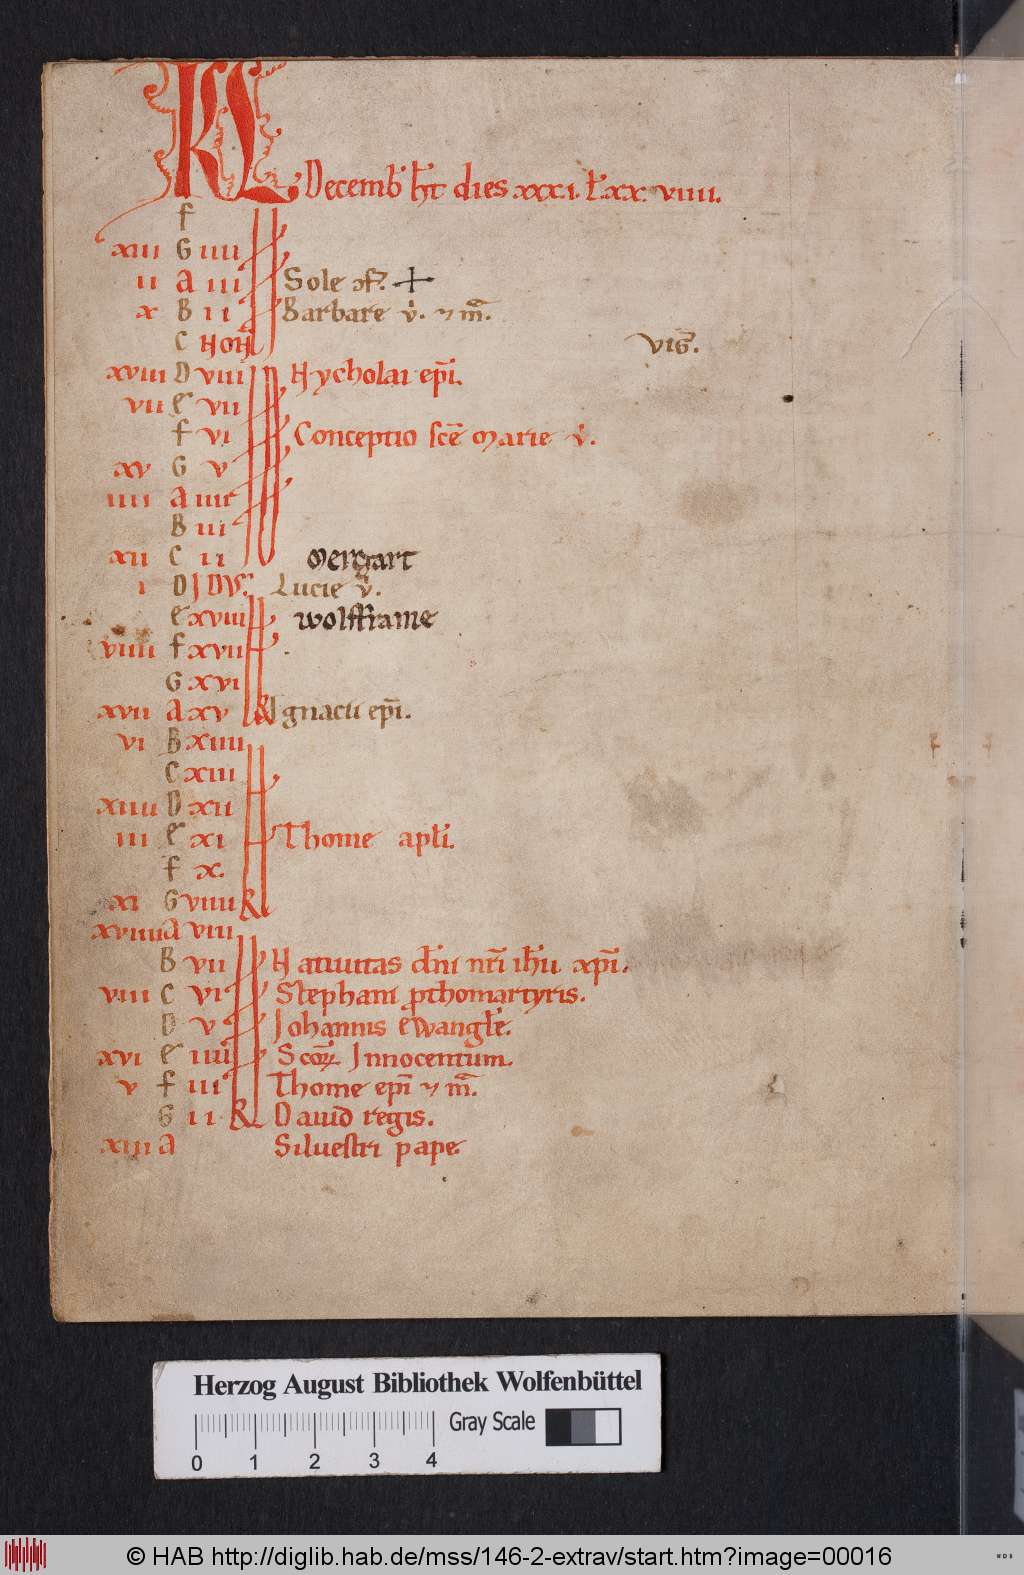 KL Decemb' h't dies xxxi. l'. xx. viiii.
f
xiii G iiii
ii A iii Sole 
x B ii Barbare v̇. ⁊ m̄.
C Non̄ viǵ.
xviii D viii Nycholai ep̄i.
vii e vii
f vi Conceptio sc̄e Marie v̇.
xv G v
iiii A iiii
B iii
xii C ii Mergart
i D IDVS. Lucie v̇.
e xviii wolfframe
viiii f xvii
G xvi
xvii A xv Ignacii ep̄i.
vi B xiiii
C xiii
xiiii D xii
iii e xi Thome apl'i.
f x.
xi G viiii
xviiii A viii
B vii Natiuitas d̄ni nr̄i ih̄u xp̄i.
viii C vi Stephani p̄thomartyris.
D v Johannis ewangl'e.
xvi e iiii Sc̄oꝝ Innocentum.
v f iii Thome ep̄i ⁊ m̄.
G ii Dauid regis.
xiii A Siluestri pape.
Herzog August Bibliothek Wolfenbüttel
Gray Scale
0 1 2 3 4
© HAB http://diglib.hab.de/mss/146-2-extrav/start.htm?image=00016